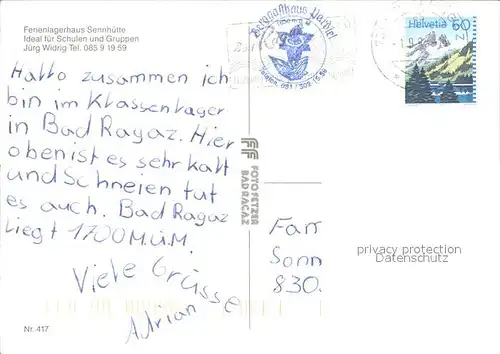 Ferienlagerhaus Sennhütte
Ideal für Schulen und Gruppen
Jürg Widrig Tel. 085 9 19 59
Hallo zusammen ich
bin im Klassenlager
in Bad Ragaz. Hier
oben ist es sehr kalt
und Schneien tut
es auch. Bad Ragaz
liegt 1700 M.ü.M.
Viele Grüsse
Adrian
Nr. 417
FOTO SETZER
BAD RAGAZ
Berggasthaus
Helvetia 60
Fam
Sonn
830.
privacy protection
Datenschutz